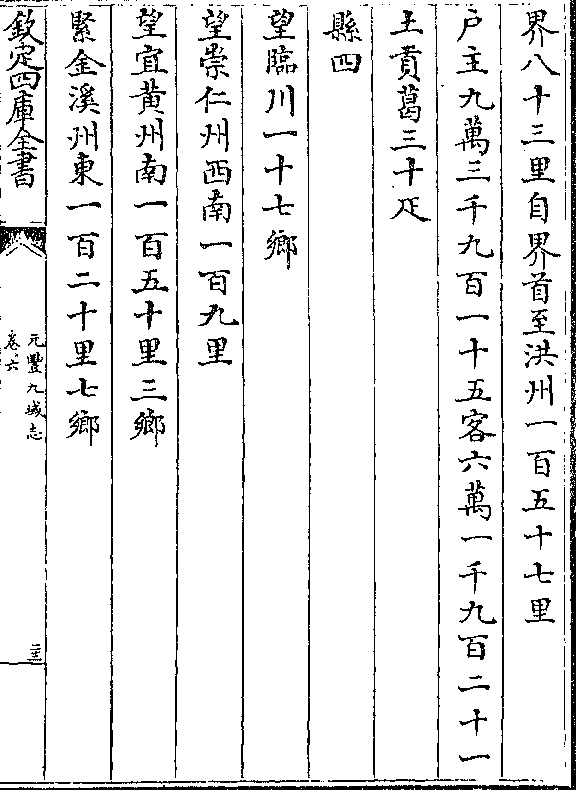 界八十三里自界首至洪州一百五十七里
户主九萬三千九百一十五客六萬一千九百二十一
土貢葛三十疋
縣四
望臨川一十七鄉
望崇仁州西南一百九里
望宜黄州南一百五十里三鄉
緊金溪州東一百二十里七鄉
欽定四庫全書
元豐九域志
卷六
二十三